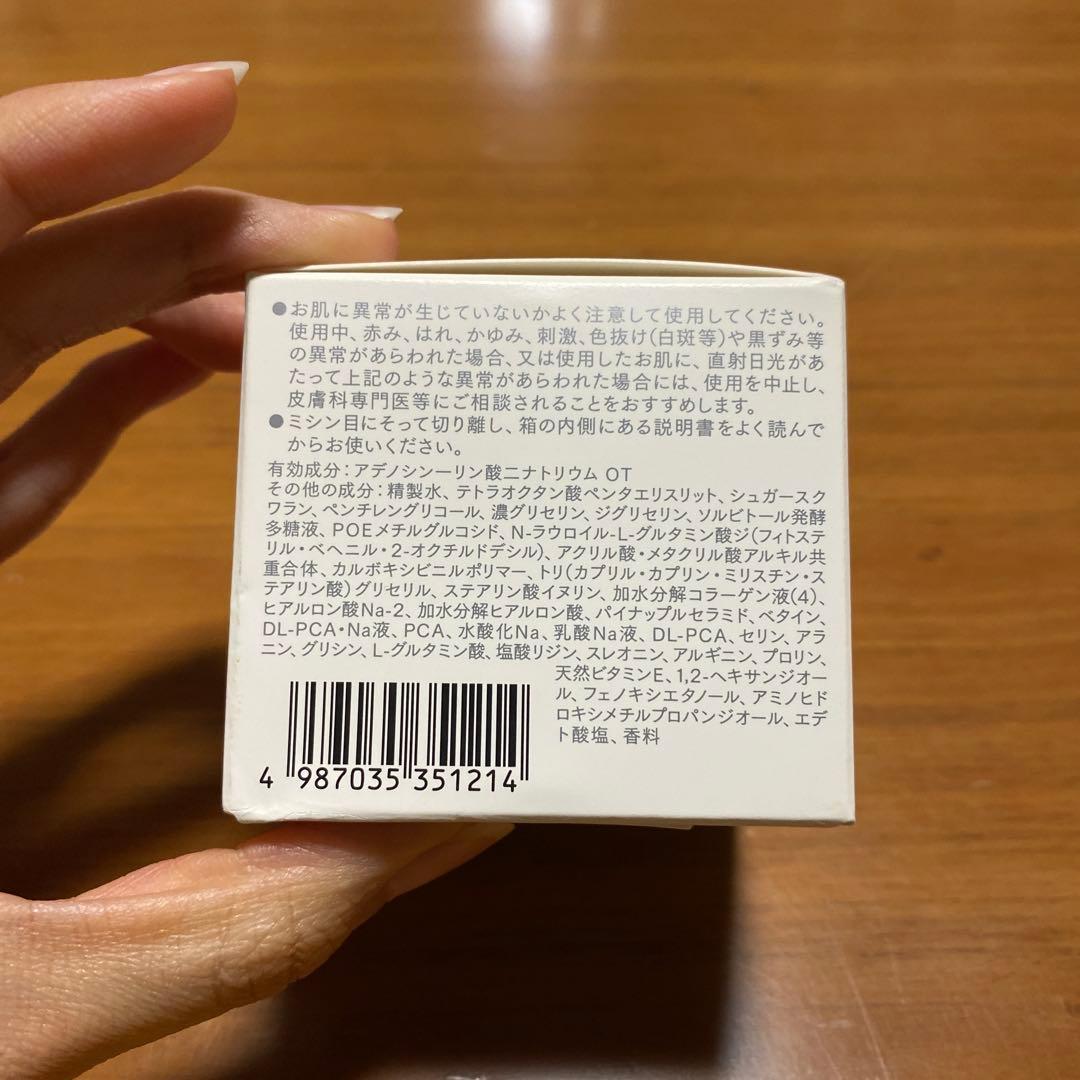 ●お肌に異常が生じていないかよく注意して使用してください。
使用中、赤み、はれ、かゆみ、刺激、色抜け(白斑等)や黒ずみ等
の異常があらわれた場合、又は使用したお肌に、直射日光があ
たって上記のような異常があらわれた場合には、使用を中止し、
皮膚科専門医等にご相談されることをおすすめします。
●ミシン目にそって切り離し、箱の内側にある説明書をよく読んで
からお使いください。
有効成分：アデノシン一リン酸二ナトリウム OT
その他の成分：精製水、テトラオクタン酸ペンタエリスリット、シュガースク
ワラン、ペンチレングリコール、濃グリセリン、ジグリセリン、ソルビトール発酵
多糖液、POEメチルグルコシド、N-ラウロイル-L-グルタミン酸ジ(フィトステ
リル・ベヘニル・2-オクチルドデシル)、アクリル酸・メタクリル酸アルキル共
重合体、カルボキシビニルポリマー、トリ(カプリル・カプリン・ミリスチン・ス
テアリン酸)グリセリル、ステアリン酸イヌリン、加水分解コラーゲン液(4)、
ヒアルロン酸Na-2、加水分解ヒアルロン酸、パイナップルセラミド、ベタイン、
DL-PCA・Na液、PCA、水酸化Na、乳酸Na液、DL-PCA、セリン、アラ
ニン、グリシン、L-グルタミン酸、塩酸リジン、スレオニン、アルギニン、プロリン、
天然ビタミンE、1,2-ヘキサンジオー
ル、フェノキシエタノール、アミノヒド
ロキシメチルプロパンジオール、エデ
ト酸塩、香料
4 987035 351214